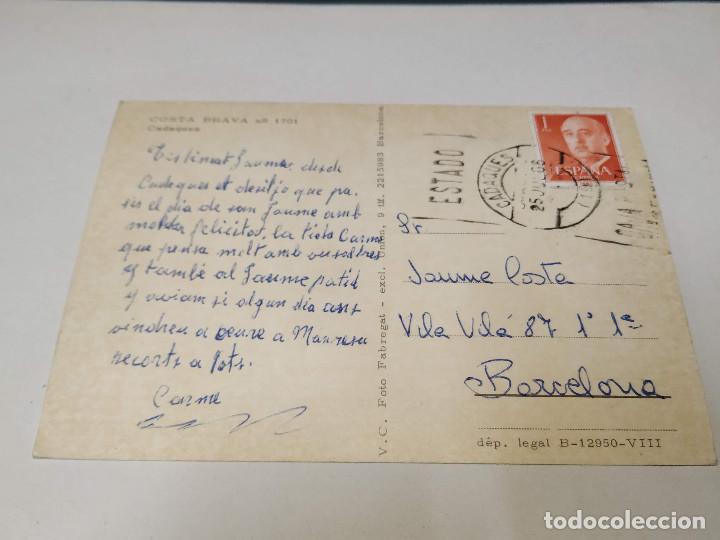 COSTA BRAVA nº 1701
Cadaques
Estimat Jaume, desde
Cadaques et desitjo que pa-
sis el dia de san Jaume amb
molta felicitat, la tieta Carme
que pensa molt amb vosaltres
y també al Jaume patit
y aviam si algun dia ans
vindreu a veure a Manresa
recorts a tots.
Carme
V.C. Foto Fabregat - excl. Unión, 9 tf. 2215983 Barcelona
ESTADO
CADAQUES
25 JUL 68
CAJA POSTAL
1
ESPAÑA
Sr.
Jaume Costa
Vila Vilá 87 1º 1ª
Barcelona
dép. legal B-12950-VIII
todocoleccion.net